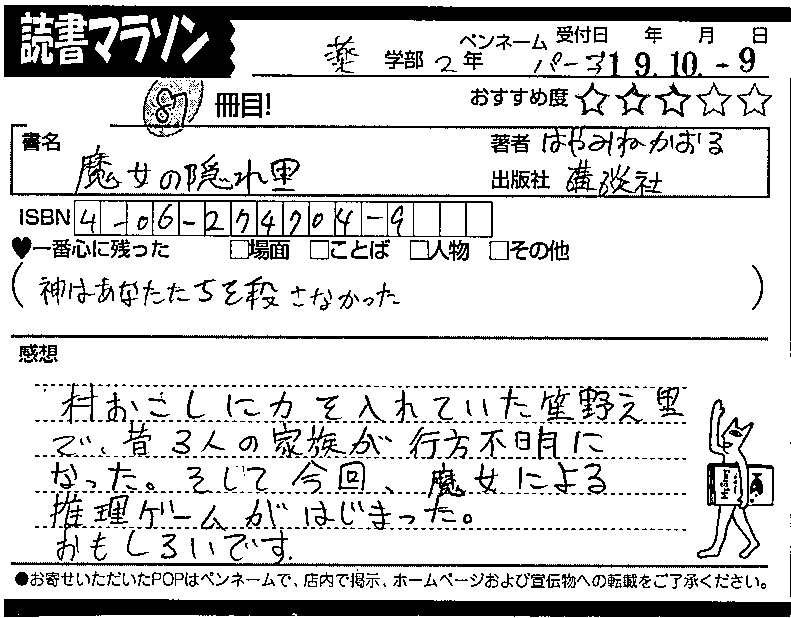 読書マラソン
薬 学部 2年 ペンネーム パーコ 受付日 年 月 日
19.10.-9
87 冊目!
おすすめ度 ☆☆☆☆☆
書名 魔女の隠れ里
著者 はやみねかおる
出版社 講談社
ISBN 4-06-274704-9
♥一番心に残った □場面 □ことば □人物 □その他
(神はあなたたちを殺さなかった)
感想
村おこしに力を入れていた笙野之里
で、昔3人の家族が行方不明に
なった。そして今回、魔女による
推理ゲームがはじまった。
おもしろいです.
●お寄せいただいたPOPはペンネームで、店内で掲示、ホームページおよび宣伝物への転載をご了承ください。